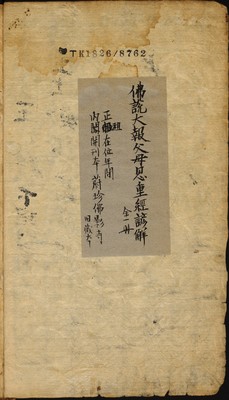 TK1826/8762
佛說大報父母恩重經諺解
全一冊
正祖在位年間
內閣開刊本